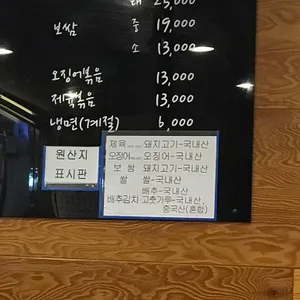 대 25,000
보쌈 중 19,000
소 13,000
오징어볶음 13,000
제육볶음 13,000
냉면(계절) 6,000
원산지
표시판
제육 돼지고기-국내산
오징어 오징어-국내산
보 쌈 돼지고기-국내산
쌀 쌀-국내산
배추-국내산
배추김치 고춧가루-국내산,
중국산(혼합)